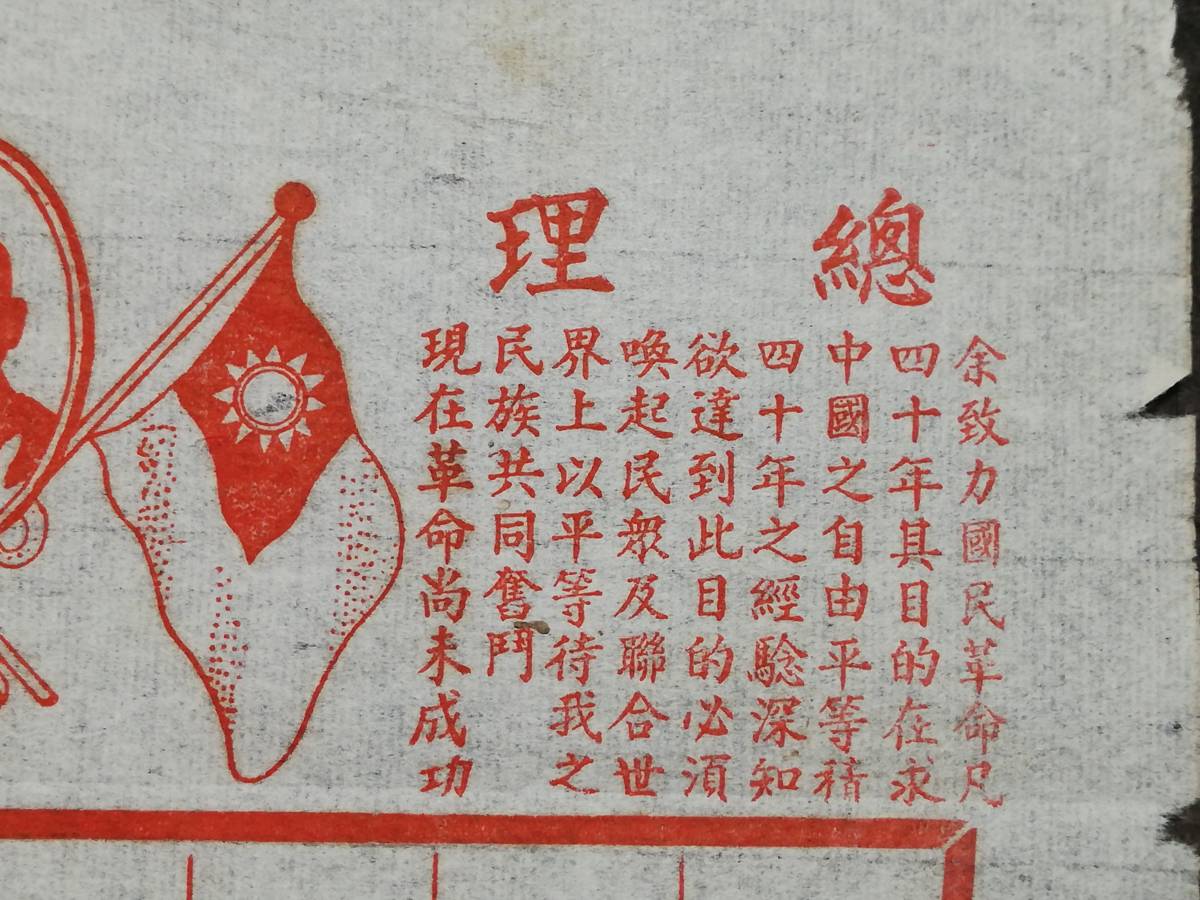 總理
余致力國民革命凡
四十年其目的在求
中國之自由平等積
四十年之經驗深知
欲達到此目的必須
喚起民眾及聯合世
界上以平等待我之
民族共同奮鬥
現在革命尚未成功